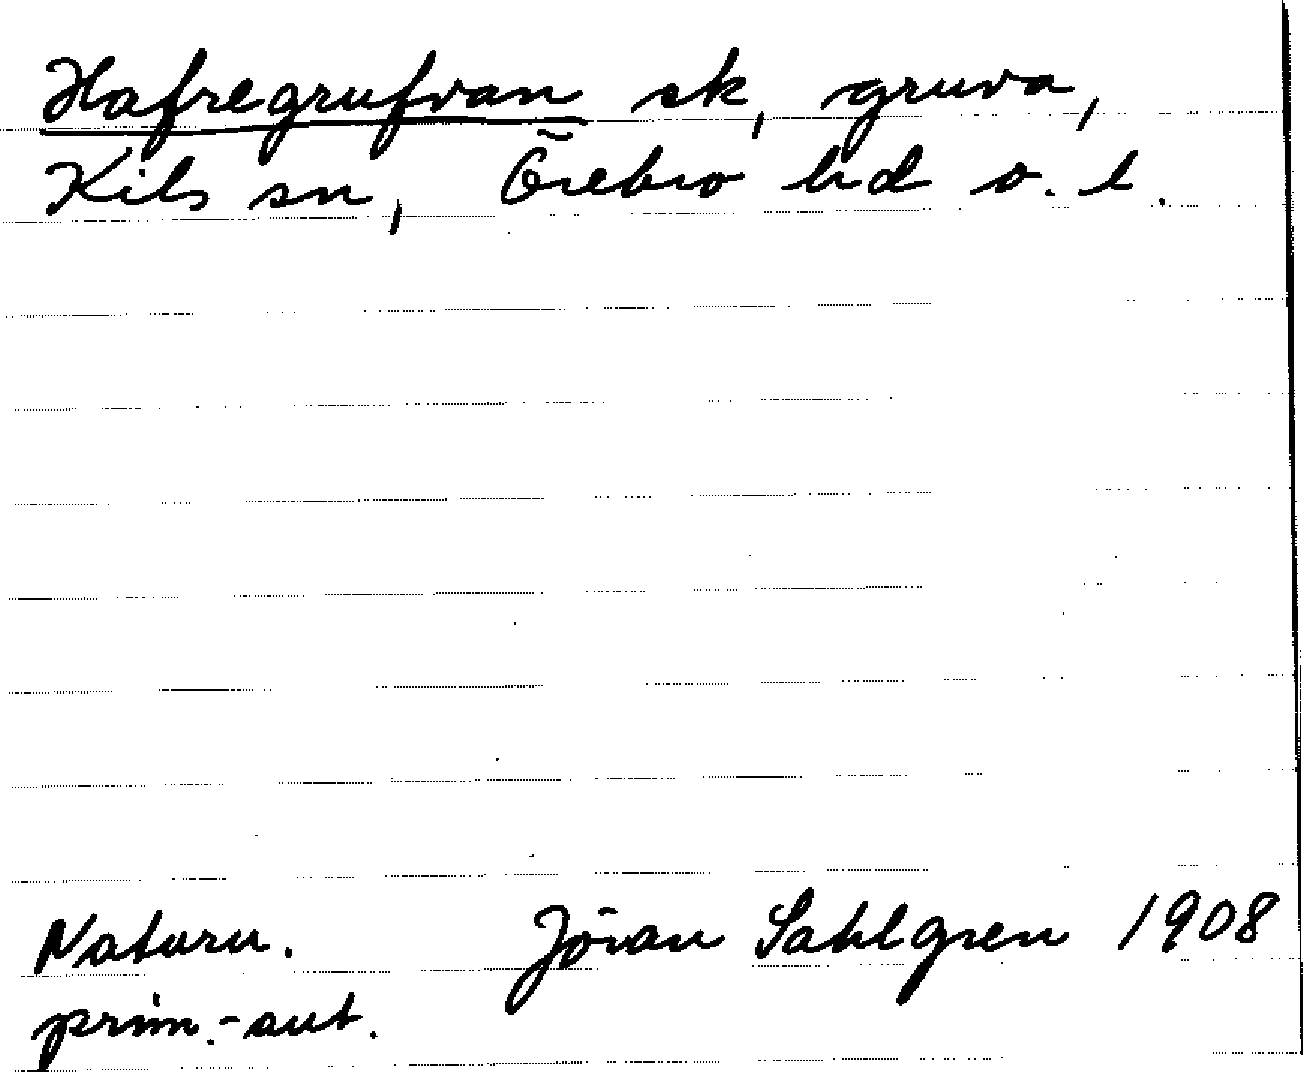 Hafregrufvan sk, gruva,
Kils sn, Örebro hd o. l.
Naturn. Jöran Sahlgren 1908
prim.-aut.